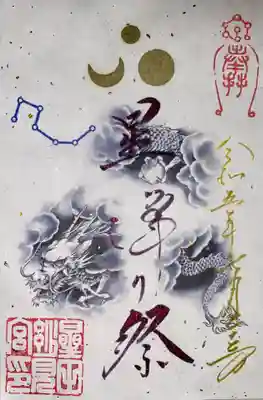 令和五年七月
星降り祭
星田
妙見
宮印